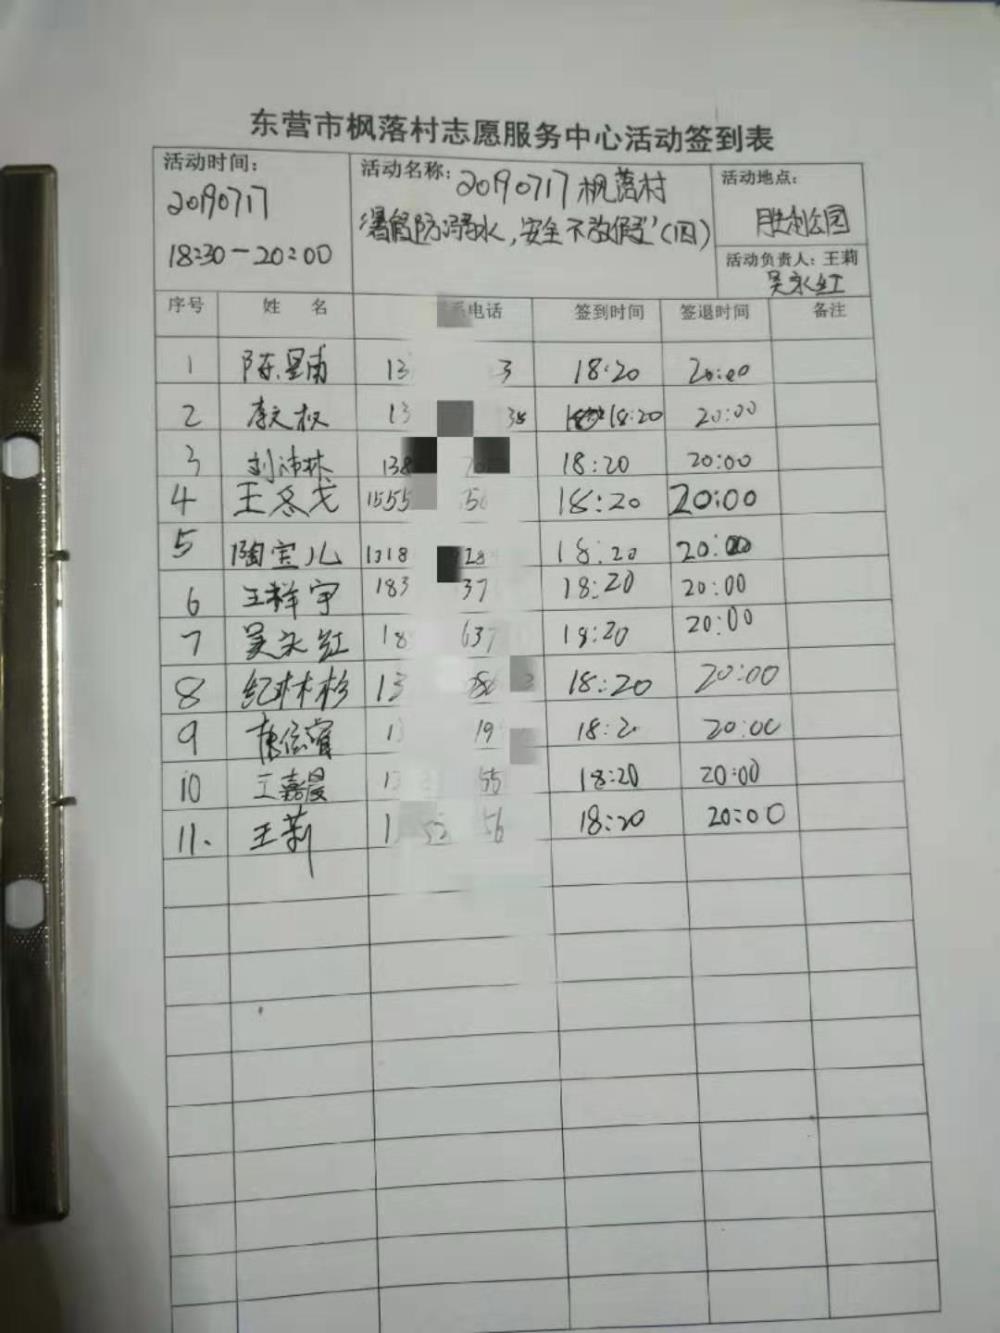 东营市枫落村志愿服务中心活动签到表
活动时间:
20190717
18:30-20:00
活动名称: 20190717枫落村
暑假防溺水,安全不放假"(四)
活动地点:
胜利公园
活动负责人: 王莉
吴永红
序号 姓 名 电话 签到时间 签退时间 备注
1 陈星甫 13 3 18:20 20:00
2 李文权 13 38 18:20 20:00
3 刘沛林 138 18:20 20:00
4 王冬戈 1555 56 18:20 20:00
5 陶宝儿 1318 928 18:20 20:00
6 王梓宇 183 37 18:20 20:00
7 吴永红 18 637 18:20 20:00
8 纪林杉 13 18:20 20:00
9 19 18:20 20:00
10 王嘉晨 13 55 18:20 20:00
11. 王莉 1 52 56 18:20 20:00